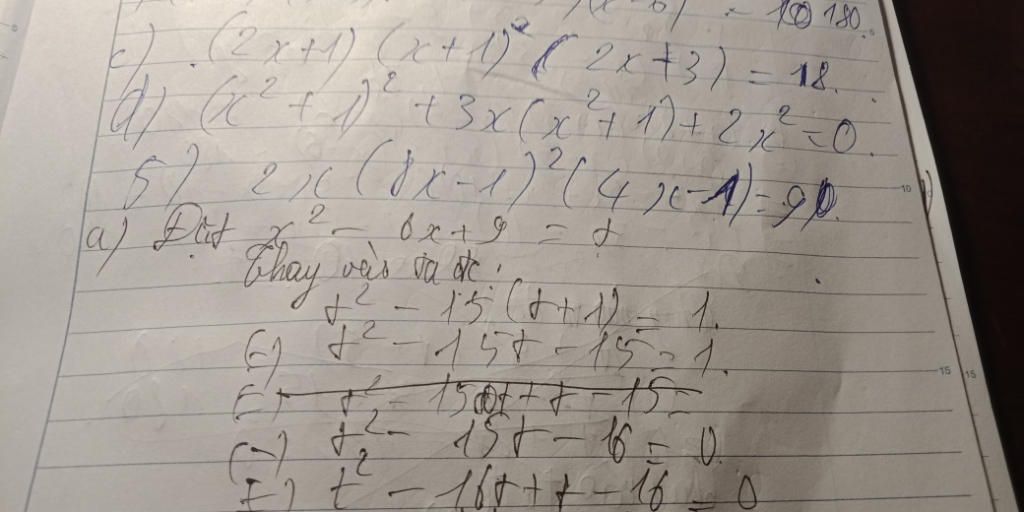 = 180.
c) (2x+1)(x+1)²(2x+3) = 18.
d) (x²+1)² + 3x(x²+1) + 2x² = 0.
5) 2x(8x-1)²(4x-1) = 9
a) Đặt x² - 6x + 9 = t
Thay vào ta đc:
t² - 15(t+1) = 1.
(=) t² - 15t - 15 = 1.
(=) t² - 15t - 16 = 0.
(=) t² - 16t + t - 16 = 0